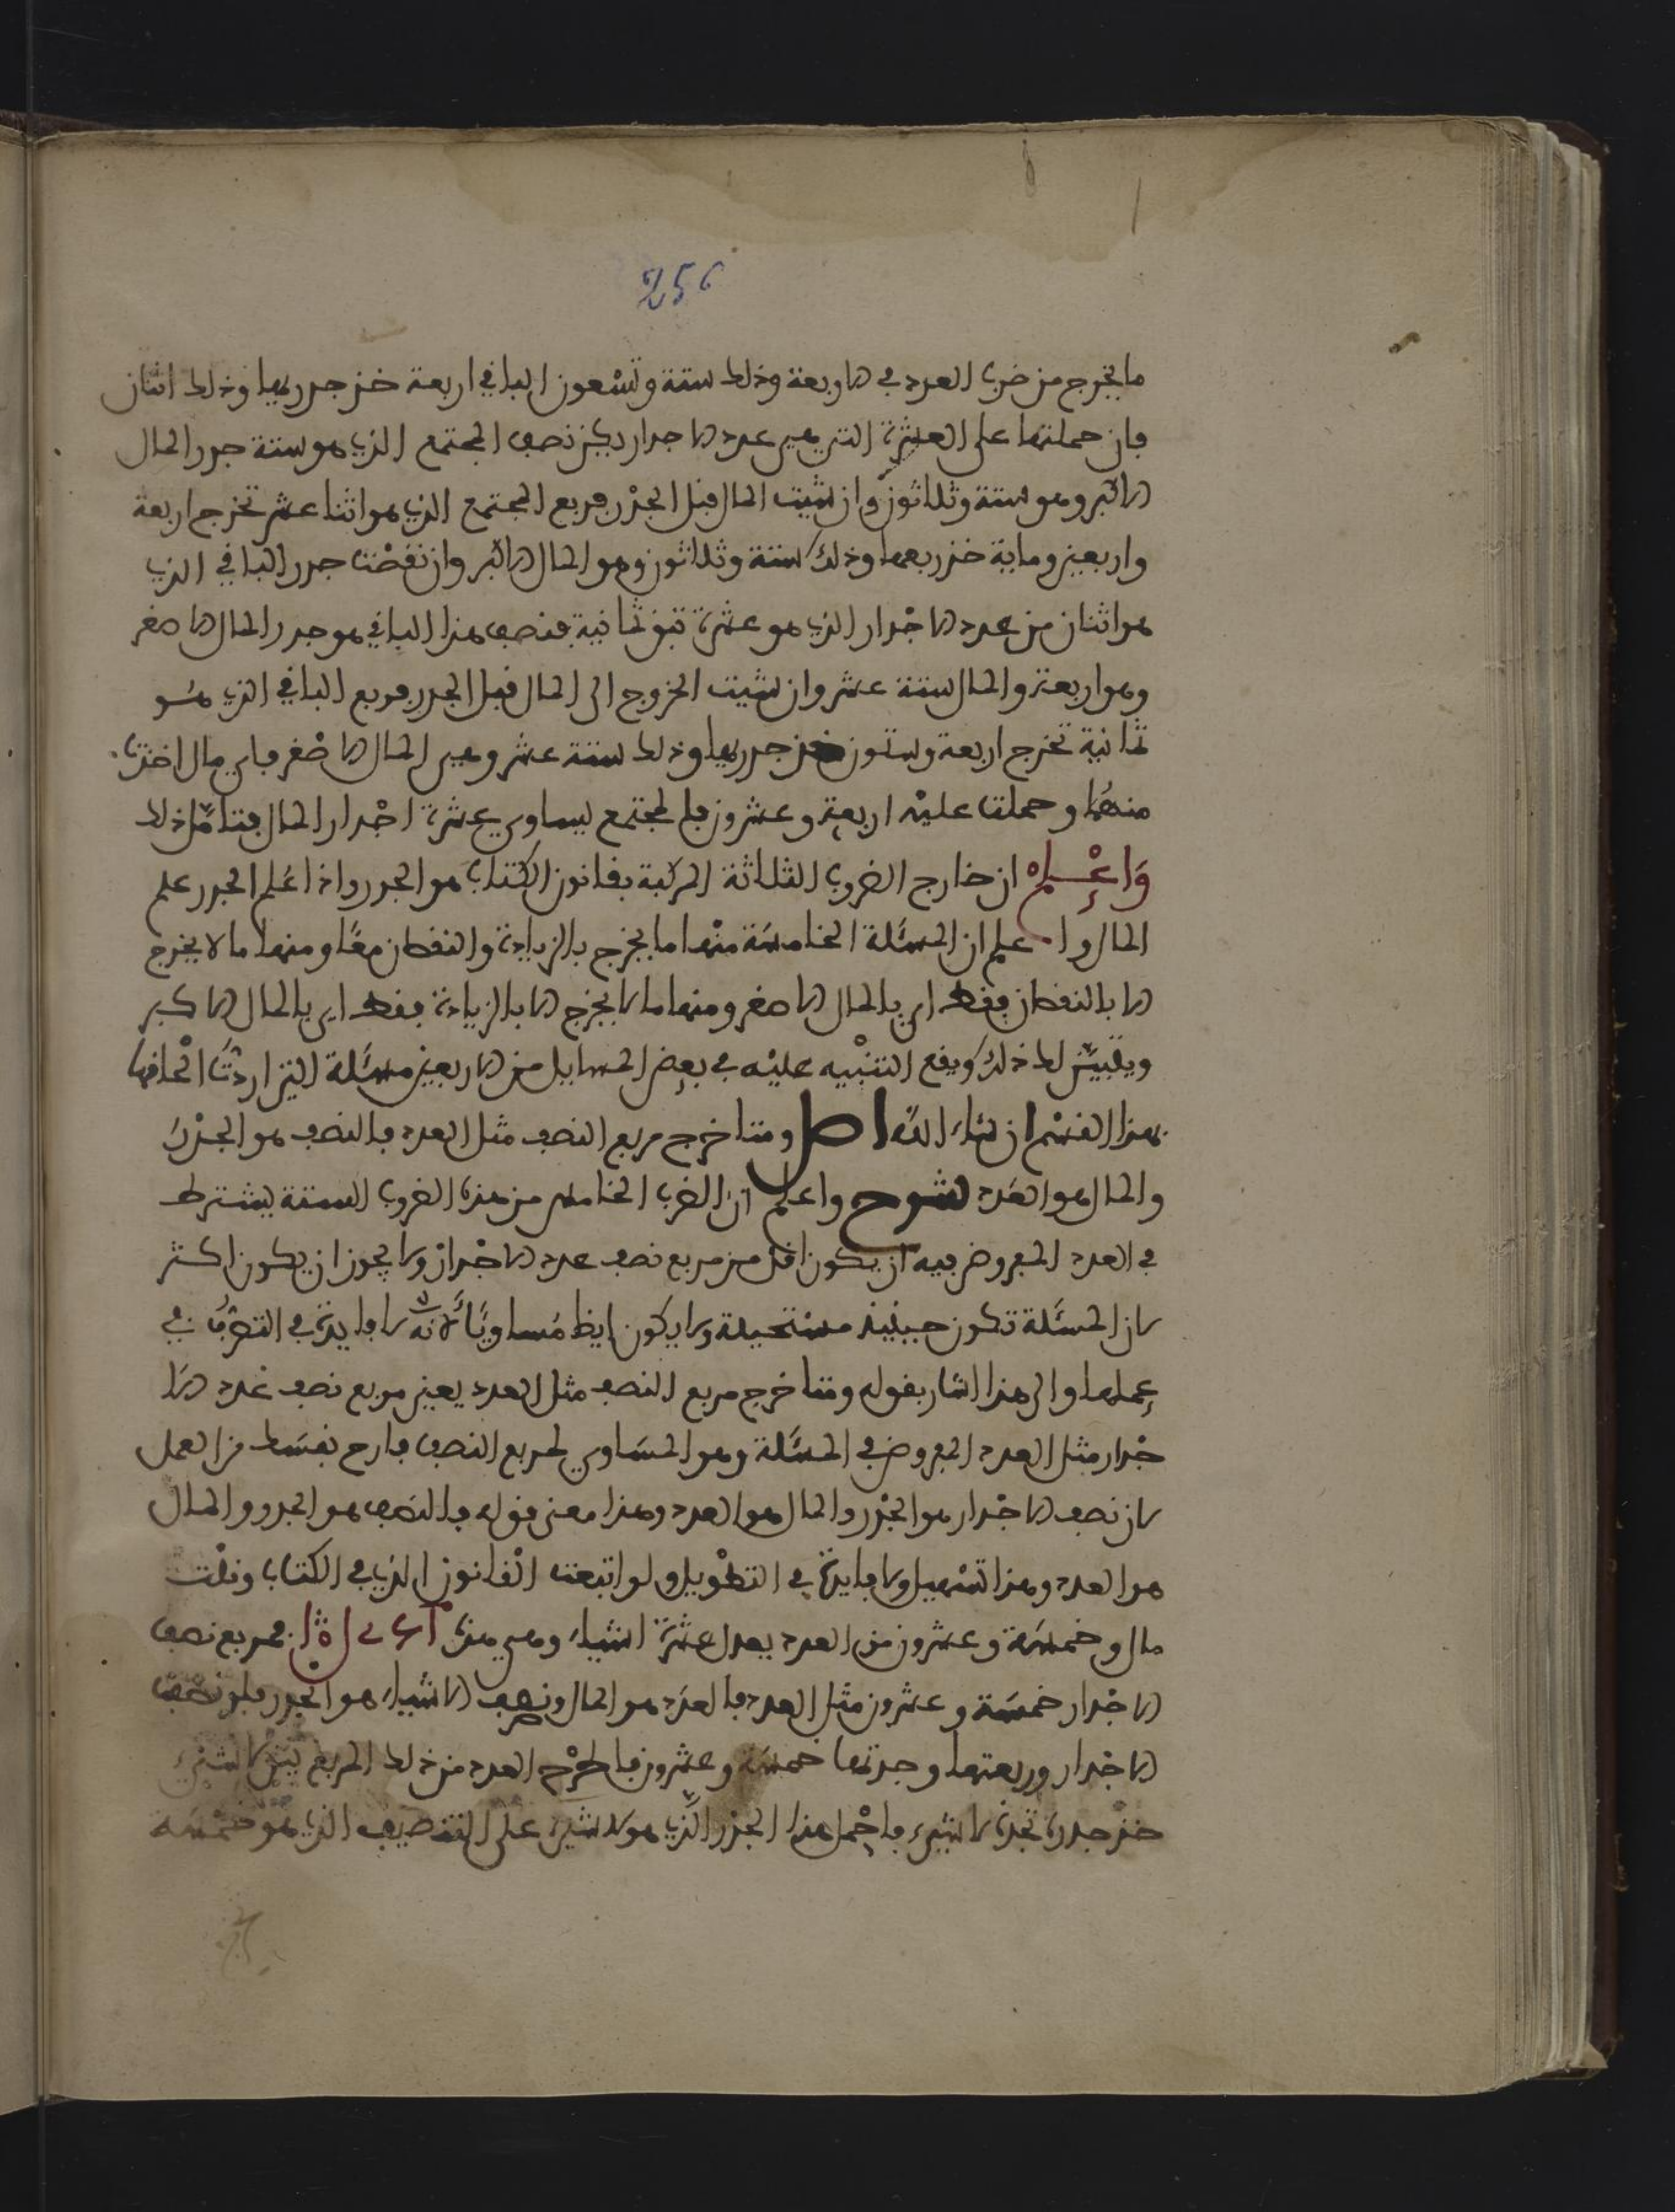 256
ما يخرج من ضرب العدد في الاربعة وذلك ستة وتسعون الباقي اربعة خذ جدريها وذلك اثنان
فان حملتها على العشرة التي هي عدد الاجدار يكن نصف المجتمع الذي هو ستة جدر المال
الاكبر وهو ستة وثلاثون وان شيت المال قبل الجذر فربع المجتمع الذي هو اثنا عشر تخرج اربعة
واربعين وماية خذ ربعها وذلك ستة وثلاثون وهو المال الاكبر وان نقصت جدر الباقي الذي
هو اثنان من عدد الاجدار الذي هو عشرة تبق ثمانية فنصف هذا الباقي هو جدر المال الاصغر
وهو اربعة والمال ستة عشر وان شيت الخروج الى المال قبل الجدر فربع الباقي الذي هو
ثمانية تخرج اربعة وستون خذ جدريها وذلك ستة عشر وهي المال الاصغر فاي مال اخذت
منهما وحملت عليه اربعة وعشرون فالمجتمع يساوي عشرة اجدار المال فتامل ذلك
واعلم ان خارج الضروب الثلاثة المركبة بقانون الكتاب هو الجدر واذا علم الجدر علم
المال واعلم ان المسئلة الخامسة منها ما يخرج بالزيادة والنقصان معا ومنها ما لا يخرج
الا بالنقصان فقط اي بالمال الاصغر ومنها ما لا يخرج الا بالزيادة فقط اي بالمال الاكبر
ويتبين لك ذلك ويقع التنبيه عليه في بعض المسايل من الاربعين مسئلة التي اردت الحاقها
بهذا القسم ان شاء الله اصل ومتا خرج مربع النصف مثل العدد فالنصف هو الجذر
والمال هو العدد شرح واعلم ان الضرب الخامس من هذه الضروب الستة يشترط
في العدد المفروض فيه ان يكون اقل من مربع نصف عدد الاجدار ولا يجوز ان يكون اكثر
لان المسئلة تكون حينيذ مستحيلة ولا يكون ايضا مساويا لانه لا فايدة في التصرف في
عملها والى هذا اشار بقوله ومتا خرج مربع النصف مثل العدد يعني مربع نصف عدد الا
جدار مثل العدد المفروض في المسئلة وهو المساوي لمربع النصف فارح نفسك من العمل
لان نصف الاجدار هو الجذر والمال هو العدد وهذا معنى قوله فالنصف هو الجدر والمال
هو العدد وهذا تسهيل ولا فايدة في التطويل ولو اتبعت القانون الذي في الكتاب وقلت
مال وخمسة وعشرون من العدد يعدل عشرة اشياء وهي هذه فمربع نصف
الاجدار خمسة وعشرون مثل العدد فالعدد هو المال ونصف الاشياء هو الجدر فلو نصفت
الاجدار وربعتها وجدتها خمسة وعشرون فاطرح العدد من ذلك المربع يبق لا شيء
خذ جدره تجده لا شيء فاحمل هذا الجذر الذي هو لا شيء على التنصيف الذي هو خمسة